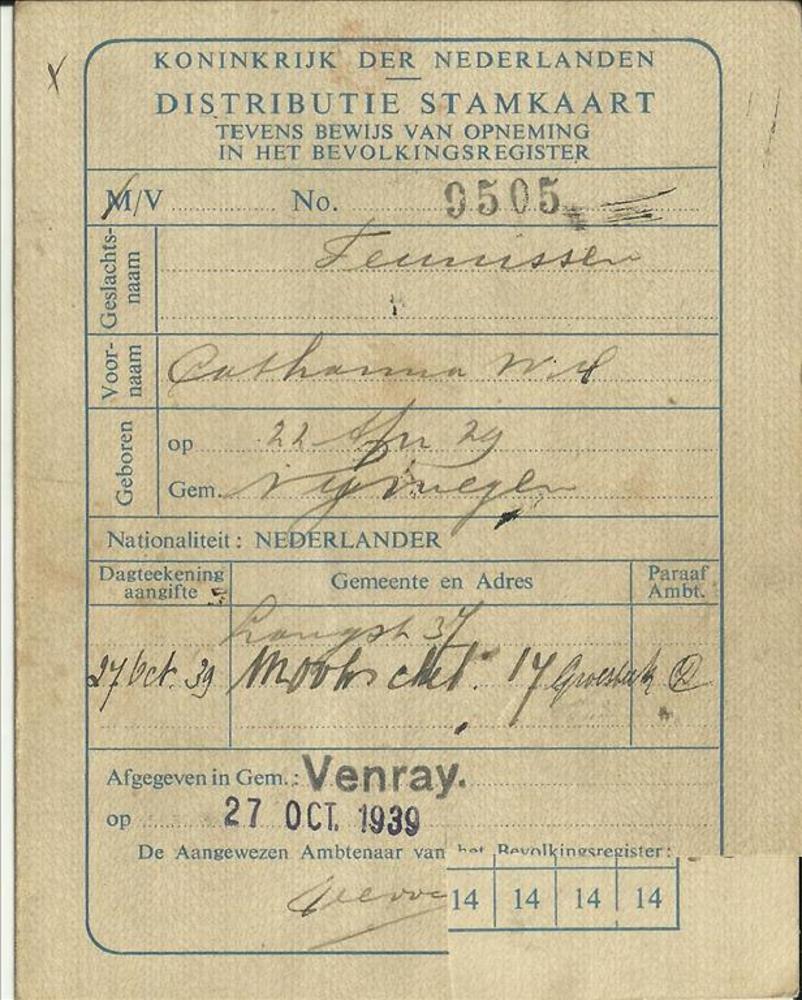 KONINKRIJK DER NEDERLANDEN
DISTRIBUTIE STAMKAART
TEVENS BEWIJS VAN OPNEMING
IN HET BEVOLKINGSREGISTER
M/V No. 9505
Geslachtsnaam Teunissen
Voornaam Catharina W.H
Geboren op 22 Apr 29
Gem. Nijmegen
Nationaliteit: NEDERLANDER
Dagteekening aangifte Gemeente en Adres Paraaf Ambt.
Langstr 37
27 Oct. 39 17 Groesbeek
Afgegeven in Gem.: Venray.
op 27 OCT. 1939
De Aangewezen Ambtenaar van het Bevolkingsregister:
14 14 14 14